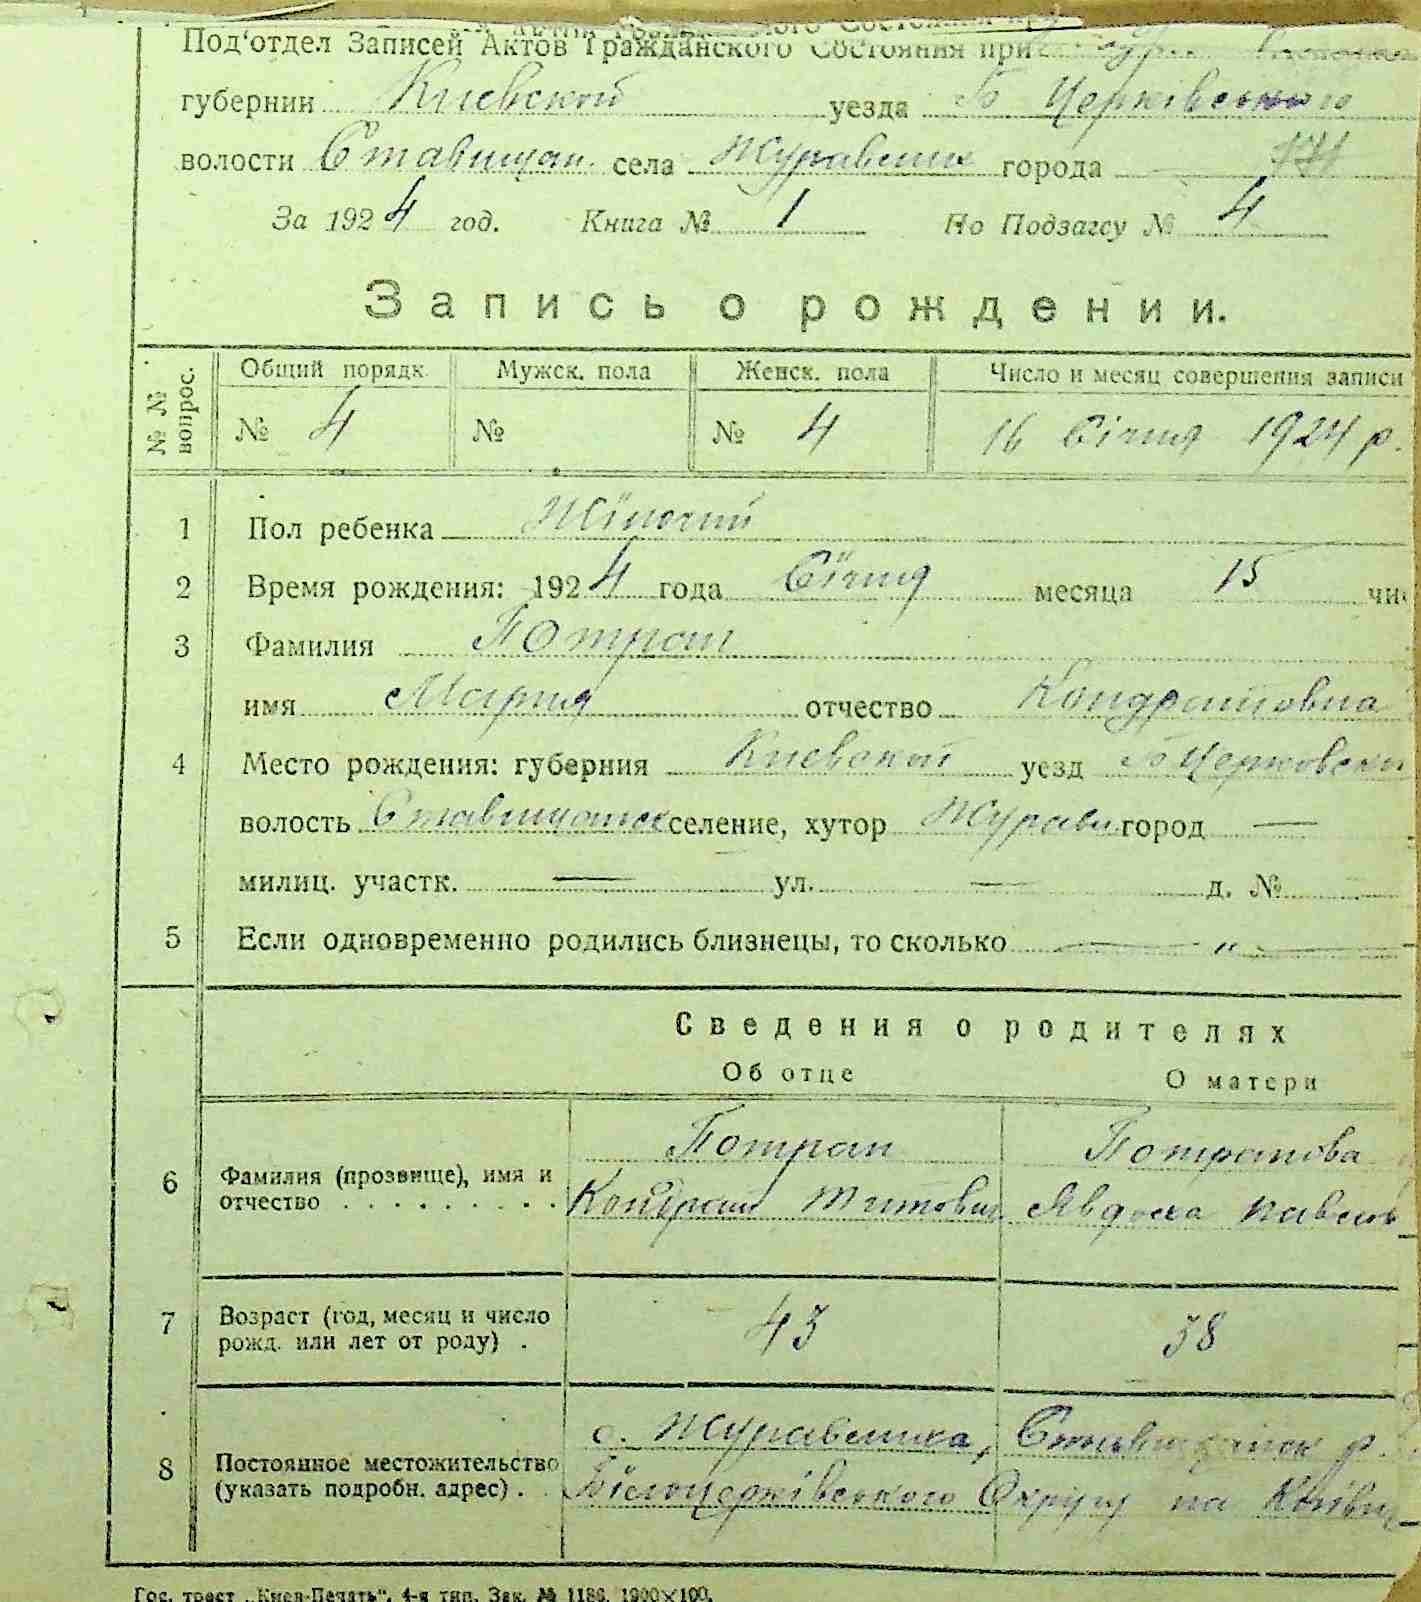 Под'отдел Записей Актов Гражданского Состояния при
губернии Киевской уезда Б Церківського
волости Ставищан. села Журавлиха города — 174
За 1924 год. Книга № 1 По Подзагсу № 4
Запись о рождении.
№ № вопрос. Общий порядк. Мужск. пола Женск. пола Число и месяц совершения записи
№ 4 № № 4 16 Січня 1924 р.
1 Пол ребенка Жіночий
2 Время рождения: 1924 года Січня месяца 15 чис
3 Фамилия Потрап
имя Мария отчество Кондратовна
4 Место рождения: губерния Киевской уезд Б Церковски
волость Ставищанск селение, хутор Журавл город —
милиц. участк. — ул. — д. №
5 Если одновременно родились близнецы, то сколько — " —
Сведения о родителях
Об отце О матери
6 Фамилия (прозвище), имя и отчество Потрап Потрапова
Кондрат Титович Явдоха Павель
7 Возраст (год, месяц и число рожд. или лет от роду) 43 38
8 Постоянное местожительство (указать подробн. адрес) с. Журавлиха, Ставищанск р.
Білоцерківського Округу на Київщ
Гос. трест „Киев-Печать", 4-я тип. Зак. № 1186. 1900×100.